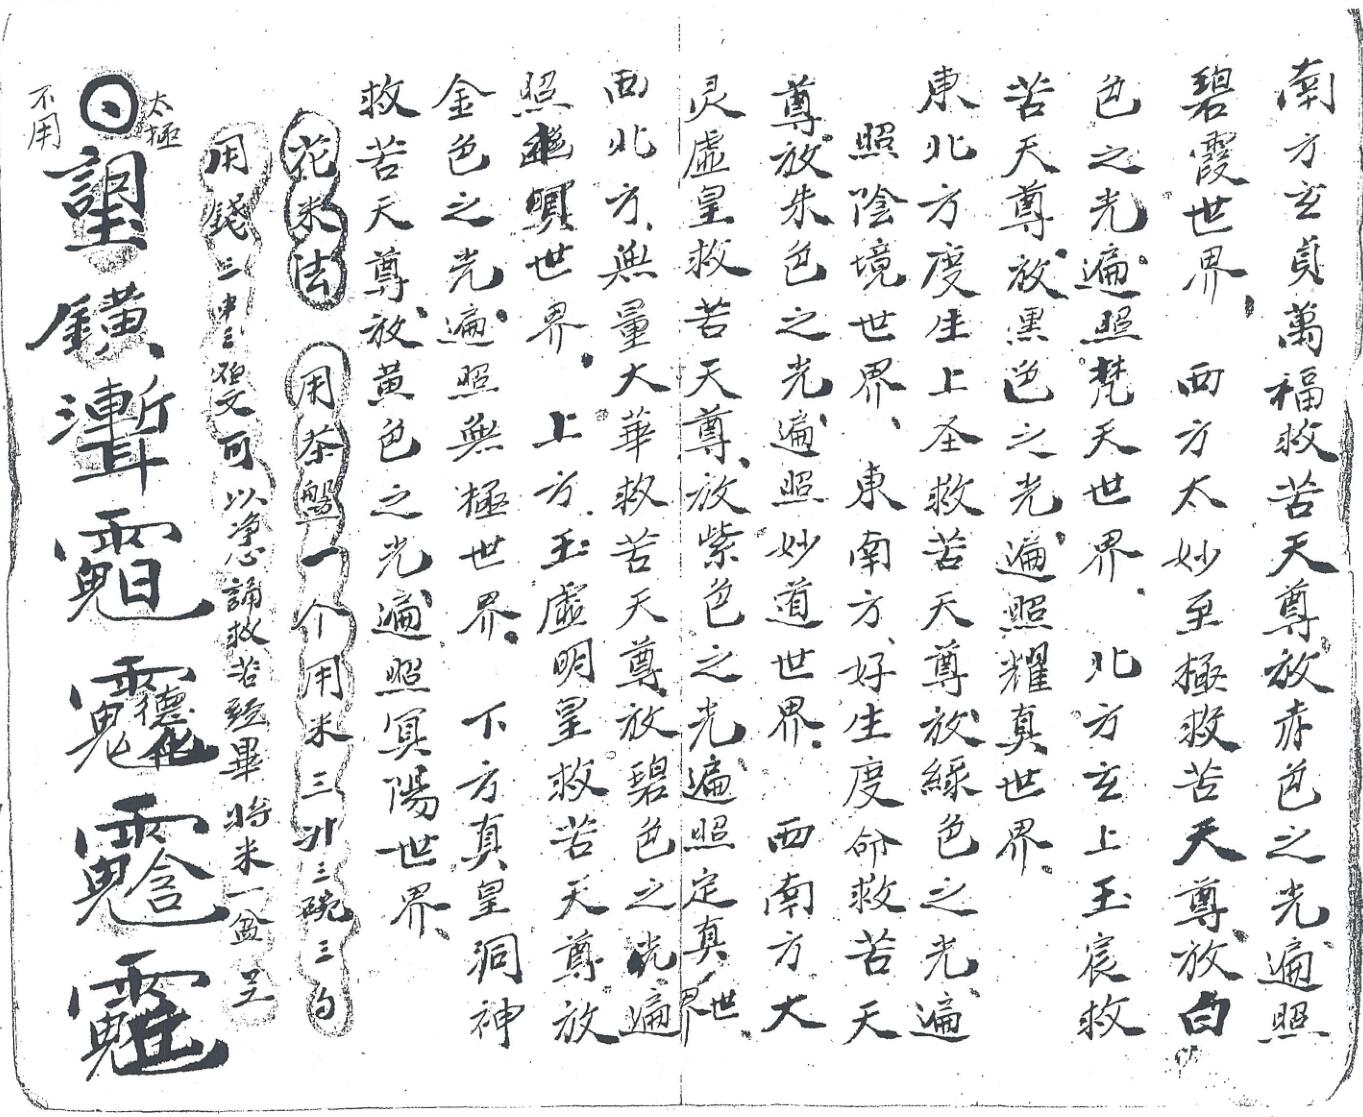 南方玄真萬福救苦天尊放赤色之光遍照
碧霞世界 西方太妙至極救苦天尊放白
色之光遍照梵天世界 北方玄上玉宸救
苦天尊放黑色之光遍照耀真世界
東北方度生上圣救苦天尊放綠色之光遍
照陰境世界 東南方好生度命救苦天
尊放朱色之光遍照妙道世界 西南方大
灵虛皇救苦天尊放紫色之光遍照定真世界
西北方無量大華救苦天尊放碧色之光遍
照世界 上方玉虛明皇救苦天尊放
金色之光遍照無極世界 下方真皇洞神
救苦天尊放黄色之光遍照冥陽世界
花米法 用茶盤一个用米三升三碗三勺
用錢三可以净心誦救苦經畢將米一盆
太極
不用